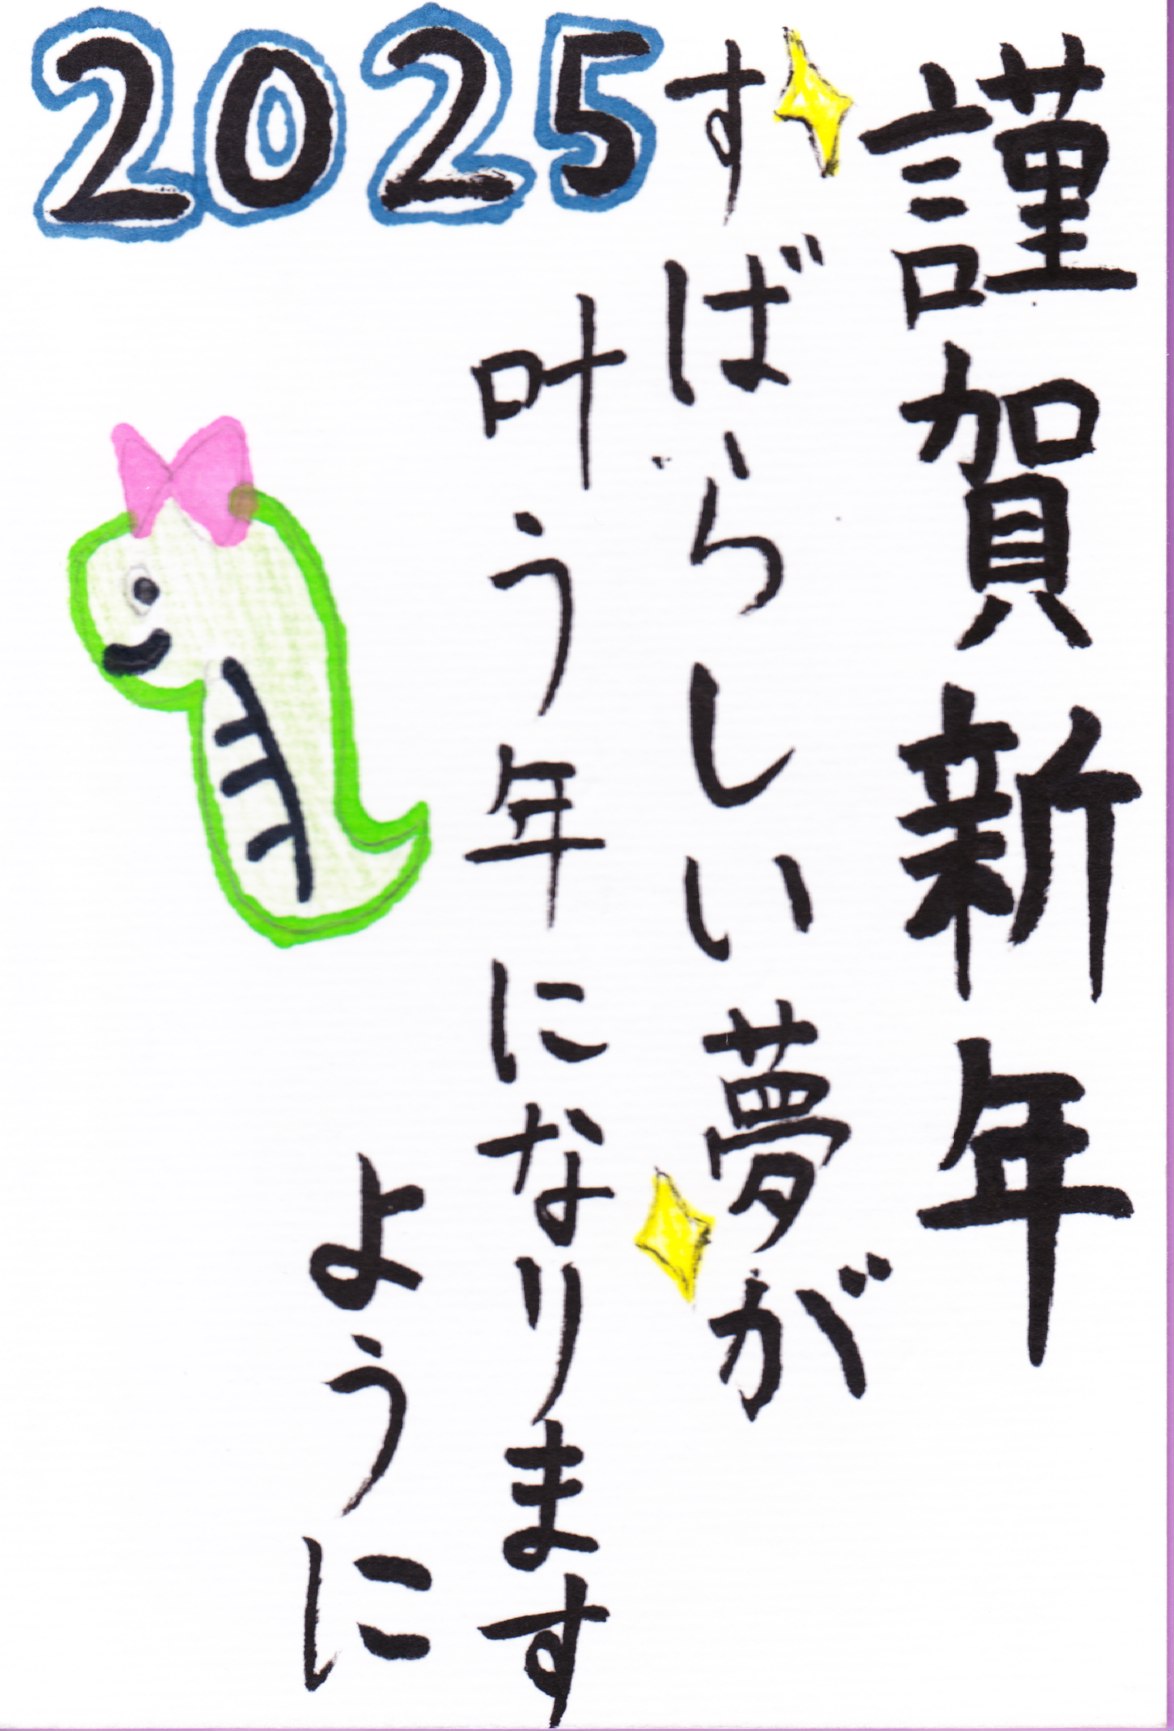 謹賀新年
すばらしい夢が
叶う年になります
ように
2025